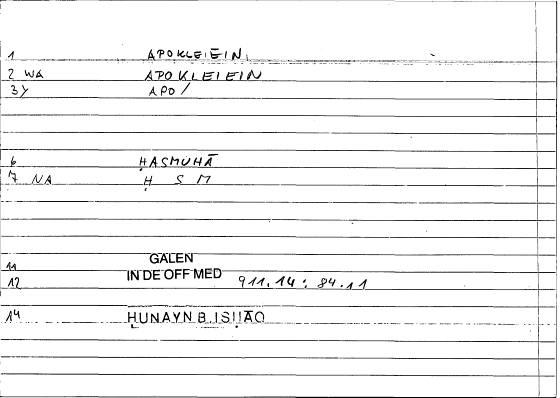 1 APOKLEIEIN
2 WA APOKLEIEIN
3 Y APO/
6 ḤASMUHĀ
7 NA Ḥ S M
11 GALEN
12 IN DE OFF MED 911.14 : 84.11
14 ḤUNAYN B. ISḤĀQ